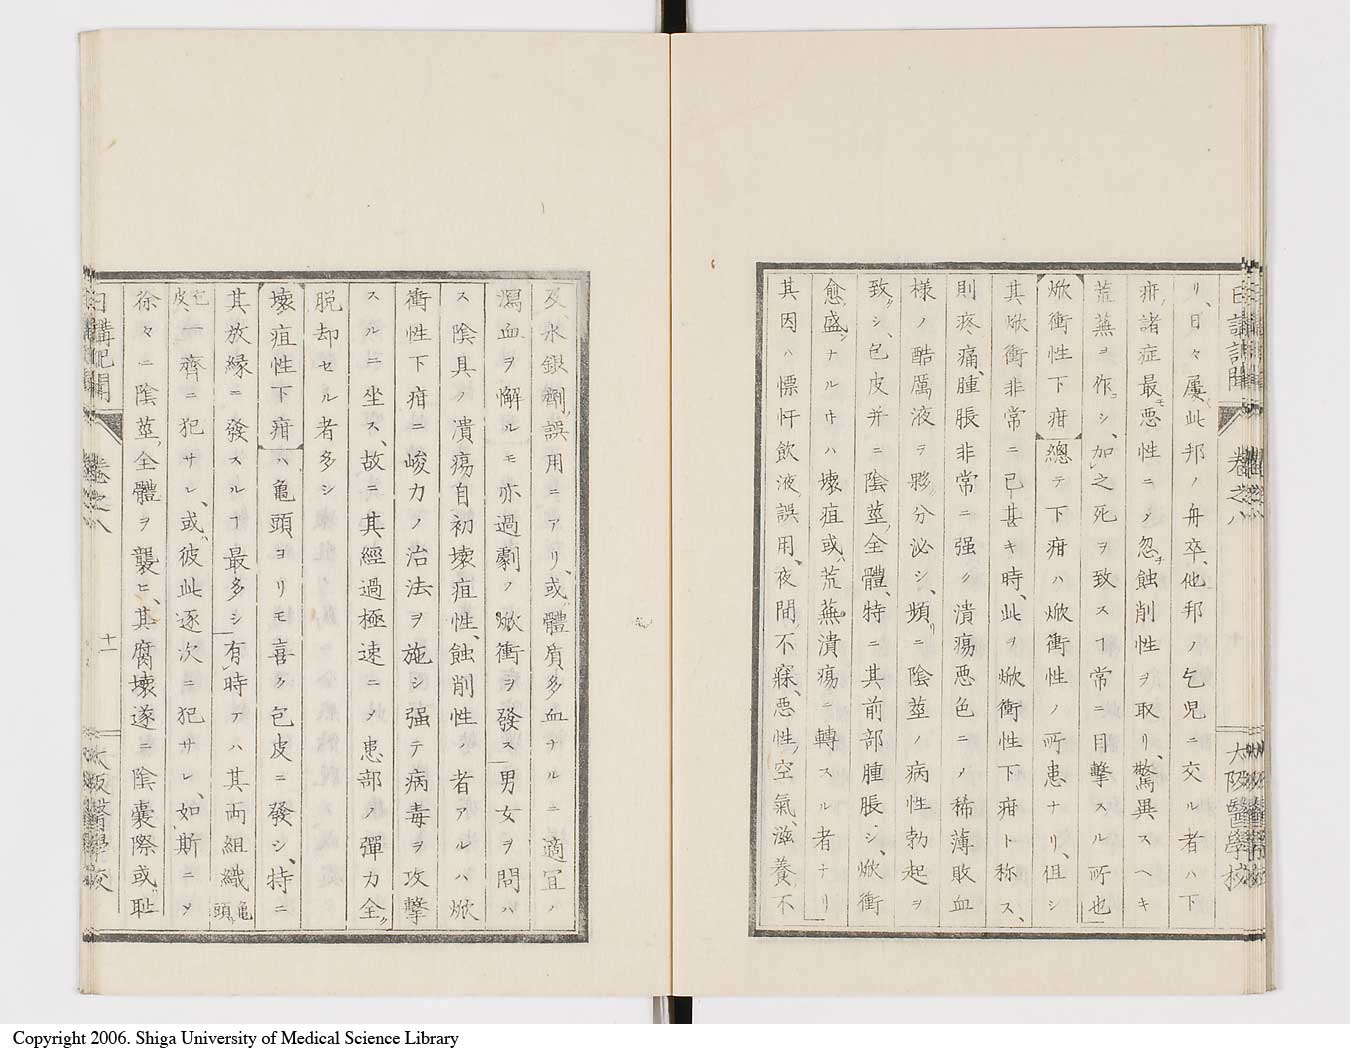 日講記聞 卷之八 大阪醫學校
リ、日々屢此邦ノ舟卒、他邦ノ乞児ニ交ル者ハ下
疳諸症最モ悪性ニノ忽チ蝕削性ヲ取リ、驚異スヘキ
荒蕪ヲ作シ、加之死ヲ致スヿ常ニ目擊スル所也
焮衝性下疳 總テ下疳ハ焮衝性ノ所患ナリ、但シ
其焮衝非常ニ已甚キ時、此ヲ焮衝性下疳ト称ス、
則疼痛、腫脹非常ニ强ク潰瘍悪色ニメ稀薄敗血
様ノ酷厲液ヲ夥分泌シ、頻ニ陰莖ノ病性勃起ヲ
致シ、包皮并ニ陰莖全體、特ニ其前部腫脹シ、焮衝
愈盛ナルキハ壊疽或荒蕪潰瘍ニ轉スル者ナリ
其因ハ慓悍飲液誤用、夜間不寐、悪性空氣、滋養不
及、水銀劑誤用ニアリ、或體質多血ナルニ適宜ノ
瀉血ヲ懈ルモ亦過劇ノ焮衝ヲ發ス 男女ヲ問ハ
ス陰具ノ潰瘍自初壊疽性、蝕削性ノ者アルハ焮
衝性下疳ニ峻力ノ治法ヲ施シ强テ病毒ヲ攻擊
スルニ坐ス、故ニ其經過極速ニメ患部ノ彈力全
脱却セル者多シ
壊疽性下疳 ハ亀頭ヨリモ喜ク包皮ニ發シ、特ニ
其放緣ニ發スルヿ最多シ 有時テハ其両組織 亀頭
包皮 一齊ニ犯サレ、或彼此逐次ニ犯サレ、如斯ニメ
徐々ニ陰莖全體ヲ襲ヒ、其腐壊遂ニ陰嚢際或耻
日講記聞 卷之八 十一 大阪醫學校
Copyright 2006. Shiga University of Medical Science Library